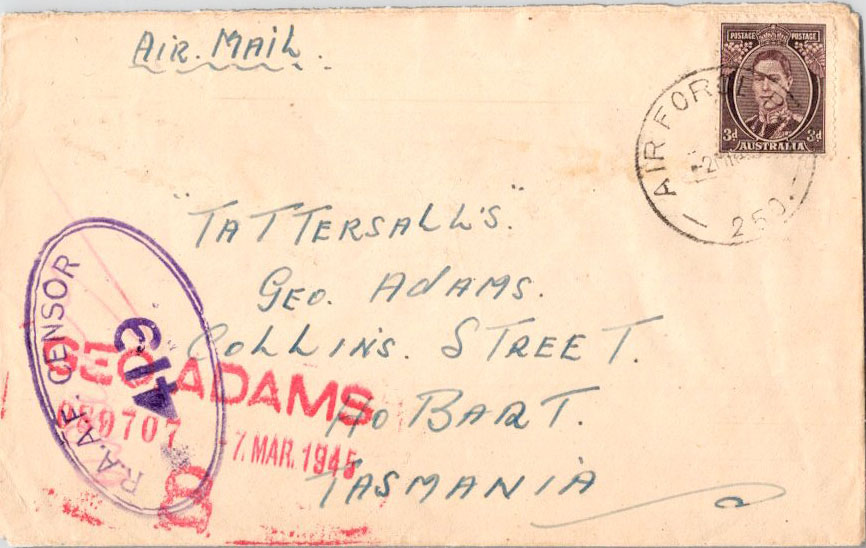 AIR. MAIL.
POSTAGE POSTAGE
3d 3d
AUSTRALIA
AIR FORCE
250.
"TATTERSALL'S."
GEO. ADAMS.
COLLINS. STREET.
HOBART.
TASMANIA
R.A.A.F. CENSOR
413
GEO. ADAMS
7. MAR. 1945